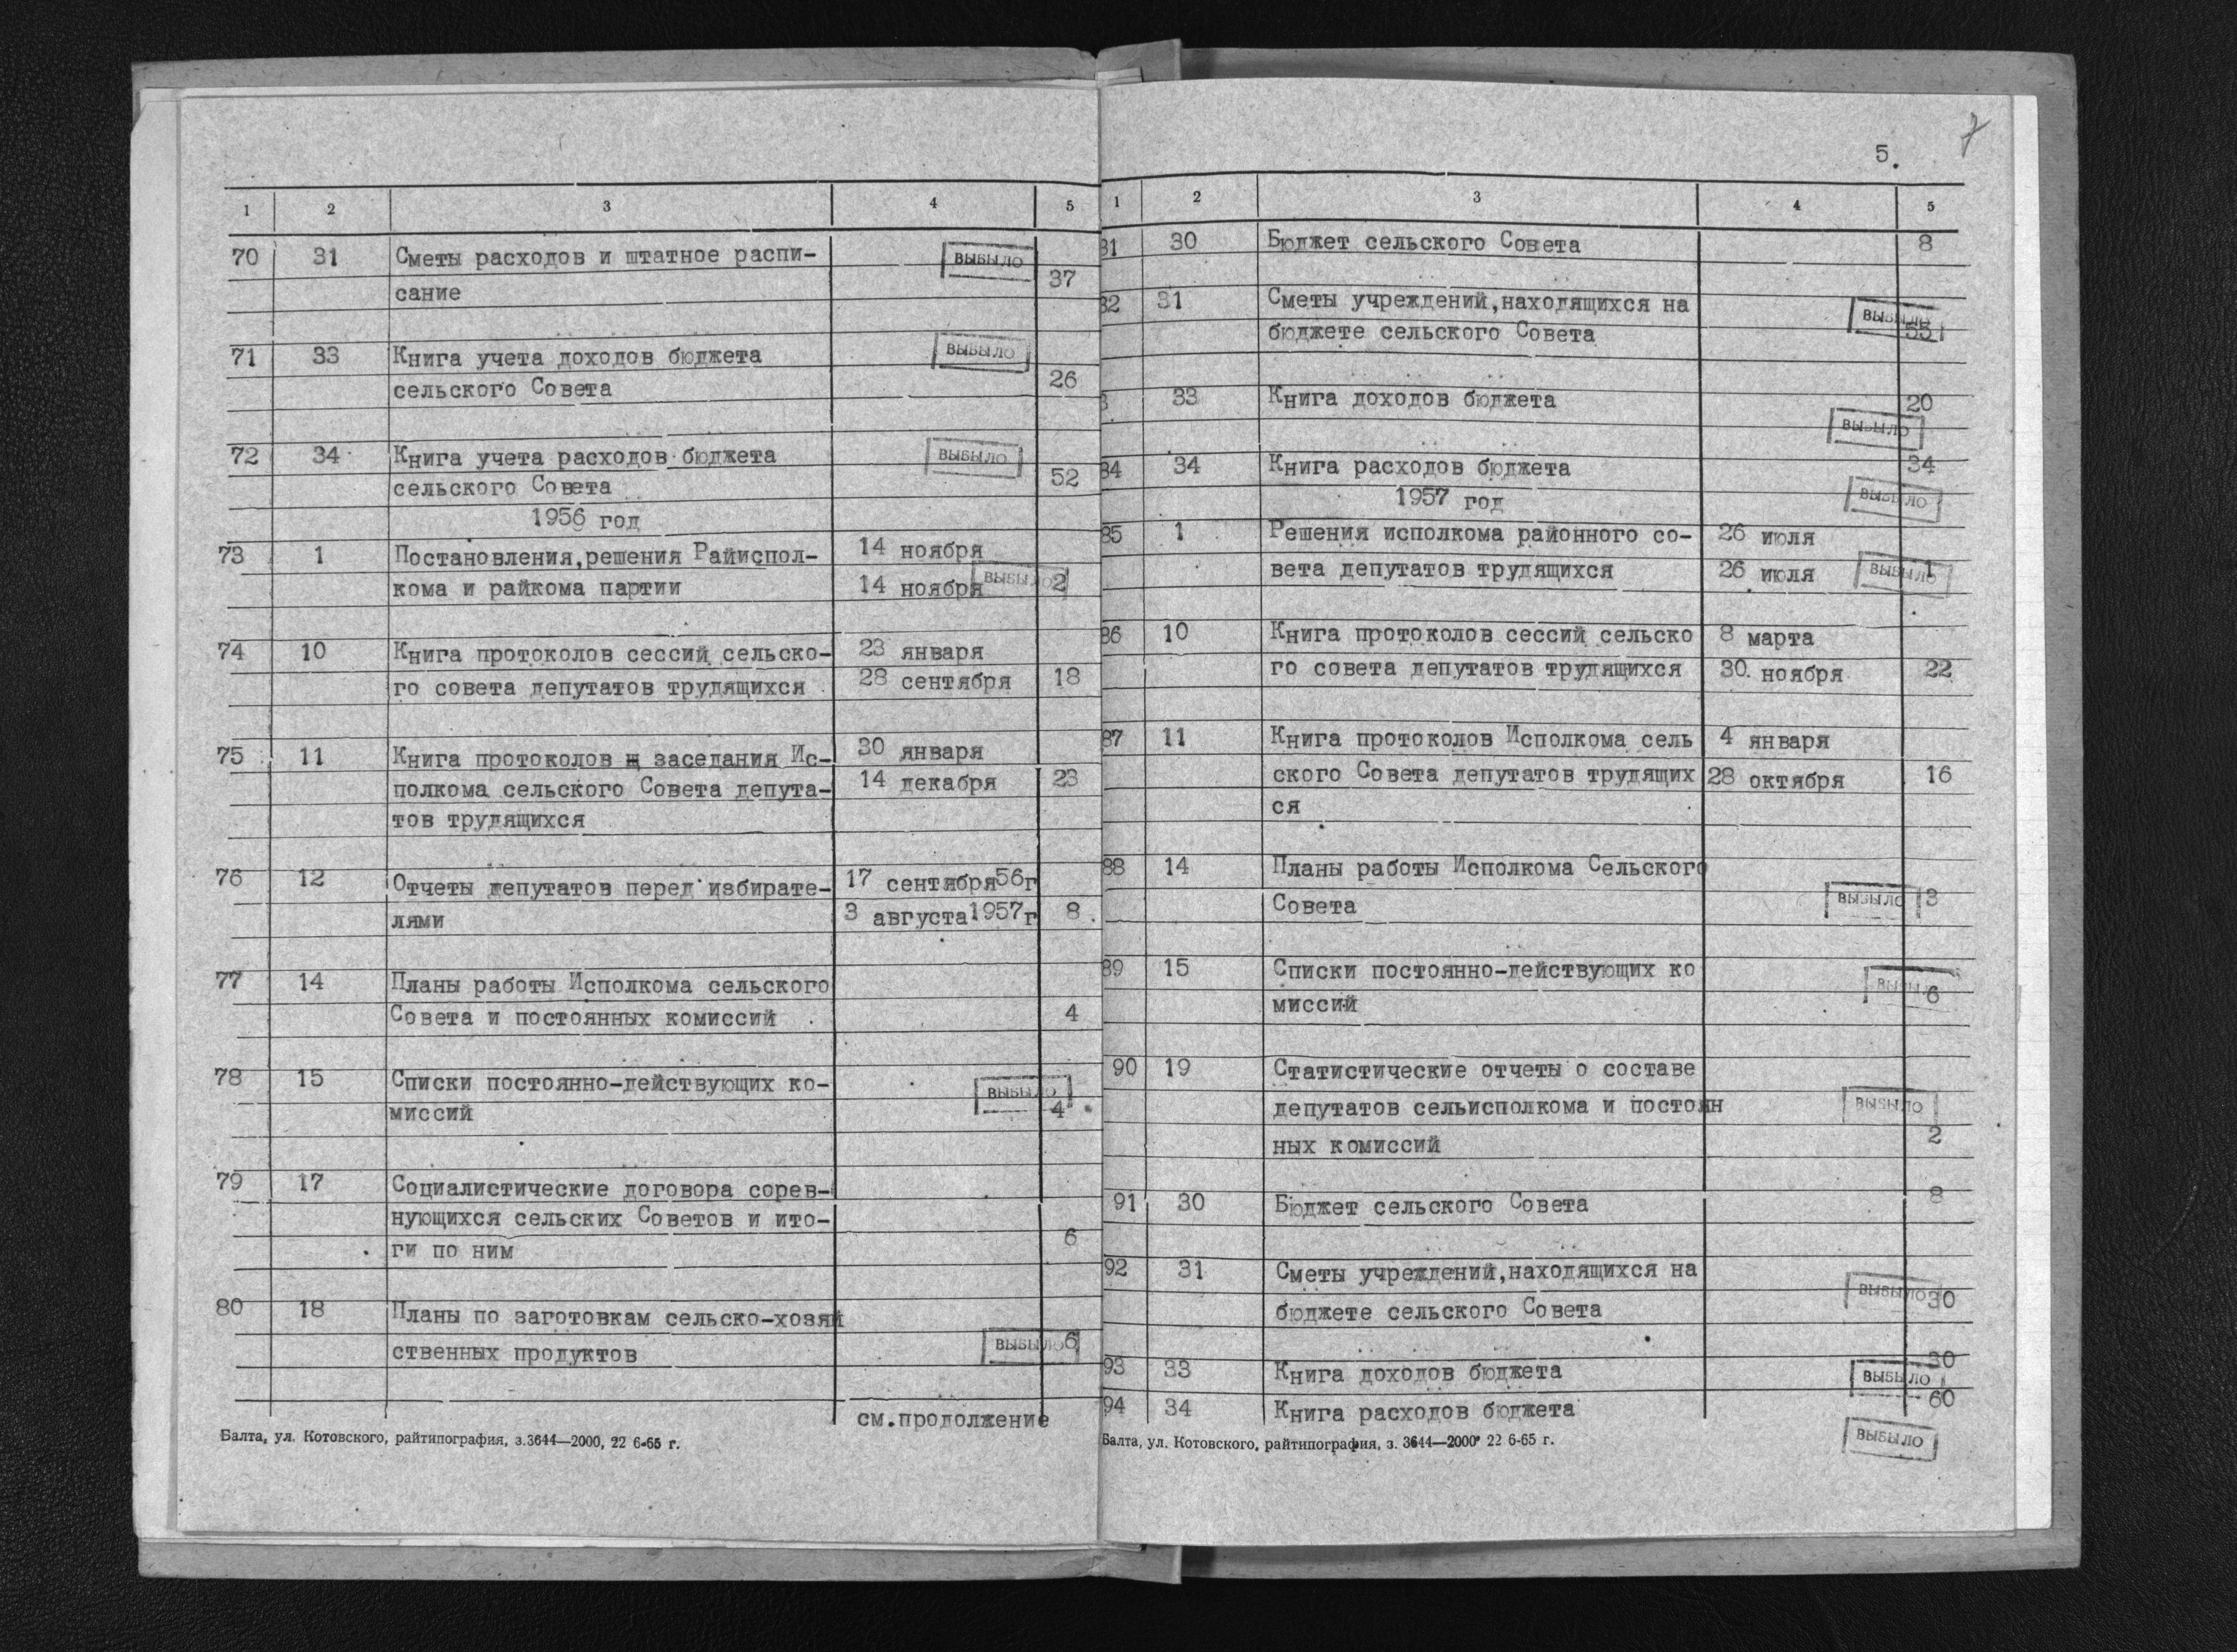 1 2 3 4 5
70 31 Сметы расходов и штатное распи- выбыло
сание 37
71 33 Книга учета доходов бюджета выбыло
сельского Совета 26
72 34 Книга учета расходов бюджета выбыло
сельского Совета 52
1956 год
73 1 Постановления,решения Райиспол- 14 ноября
кома и райкома партии 14 ноября выбыло 2
74 10 Книга протоколов сессий сельско- 23 января
го совета депутатов трудящихся 28 сентября 18
75 11 Книга протоколов заседания Ис- 30 января
полкома сельского Совета депута- 14 декабря 23
тов трудящихся
76 12 Отчеты депутатов перед избирате- 17 сентября56г
лями 3 августа1957г 8
77 14 Планы работы Исполкома сельского
Совета и постоянных комиссий 4
78 15 Списки постоянно-действующих ко- выбыло
миссий 4
79 17 Социалистические договора сорев-
нующихся сельских Советов и ито-
ги по ним 6
80 18 Планы по заготовкам сельско-хозяй
ственных продуктов выбыло 6
см.продолжение
Балта, ул. Котовского, райтипография, з.3644—2000, 22 6-65 г.
7
5.
1 2 3 4 5
81 30 Бюджет сельского Совета 8
82 31 Сметы учреждений,находящихся на выбыло
бюджете сельского Совета 55
33 Книга доходов бюджета 20
выбыло
84 34 Книга расходов бюджета 34
1957 год выбыло
85 1 Решения исполкома районного со- 26 июля
вета депутатов трудящихся 26 июля выбыло 1
86 10 Книга протоколов сессий сельско 8 марта
го совета депутатов трудящихся 30. ноября 22
87 11 Книга протоколов Исполкома сель 4 января
ского Совета депутатов трудящих 28 октября 16
ся
88 14 Планы работы Исполкома Сельского
Совета выбыло 3
89 15 Списки постоянно-действующих ко выбыло
миссий 6
90 19 Статистические отчеты о составе
депутатов сельисполкома и постоян выбыло
ных комиссий 2
91 30 Бюджет сельского Совета 8
92 31 Сметы учреждений,находящихся на
бюджете сельского Совета выбыло 30
93 33 Книга доходов бюджета 30
выбыло
94 34 Книга расходов бюджета 60
выбыло
Балта, ул. Котовского, райтипография, з. 3644—2000 22 6-65 г.